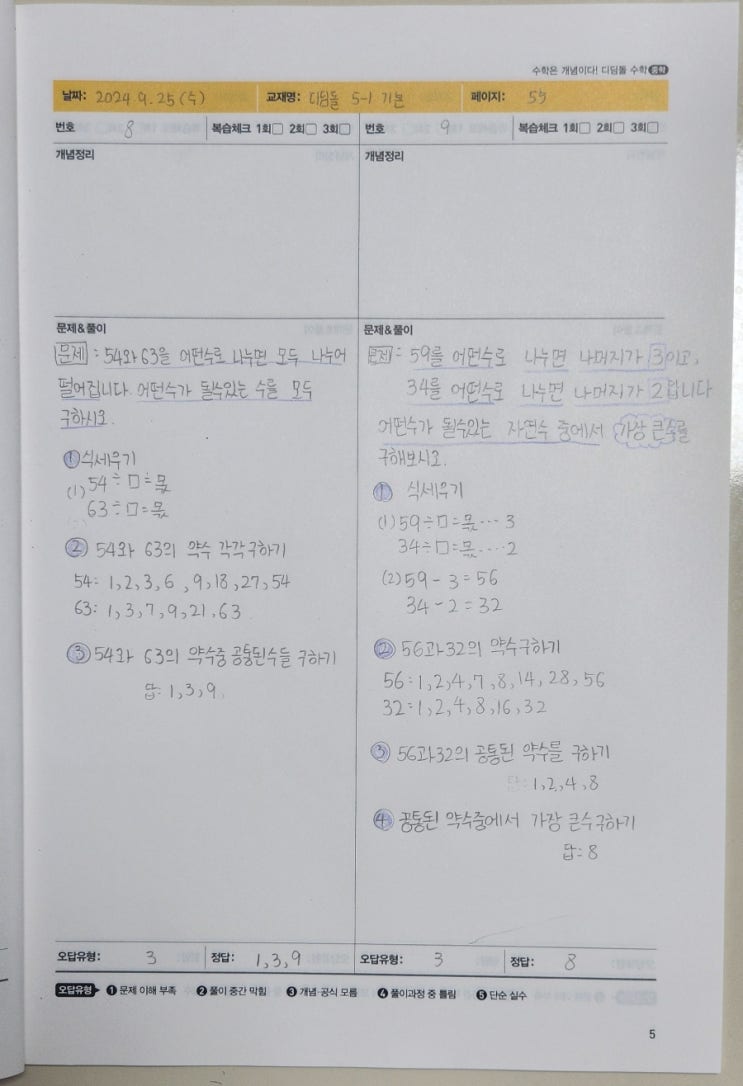 수학은 개념이다! 디딤돌 수학 중학
날짜: 2024 9.25(수) 교재명: 디딤돌 5-1 기본 페이지: 55
번호 8 복습체크 1회□ 2회□ 3회□
개념정리
문제&풀이
문제 : 54와 63을 어떤수로 나누면 모두 나누어
떨어집니다. 어떤수가 될수있는 수를 모두
구하시오.
① 식세우기
(1) 54÷□=몫
63÷□=몫
② 54와 63의 약수 각각구하기
54: 1,2,3,6,9,18,27,54
63: 1,3,7,9,21,63
③ 54와 63의 약수중 공통된수들 구하기
답: 1,3,9
오답유형: 3 정답: 1,3,9
번호 9 복습체크 1회□ 2회□ 3회□
개념정리
문제&풀이
문제 : 59를 어떤수로 나누면 나머지가 3이고,
34를 어떤수로 나누면 나머지가 2랍니다
어떤수가 될수있는 자연수 중에서 가장 큰수를
구해보시오.
① 식세우기
(1) 59÷□=몫…3
34÷□=몫…2
(2) 59-3=56
34-2=32
② 56과32의 약수구하기
56:1,2,4,7,8,14,28,56
32:1,2,4,8,16,32
③ 56과32의 공통된 약수를 구하기
답: 1,2,4,8
④ 공통된 약수중에서 가장 큰수구하기
답: 8
오답유형: 3 정답: 8
오답유형 ❶ 문제 이해 부족 ❷ 풀이 중간 막힘 ❸ 개념·공식 모름 ❹ 풀이과정 중 틀림 ❺ 단순 실수
5